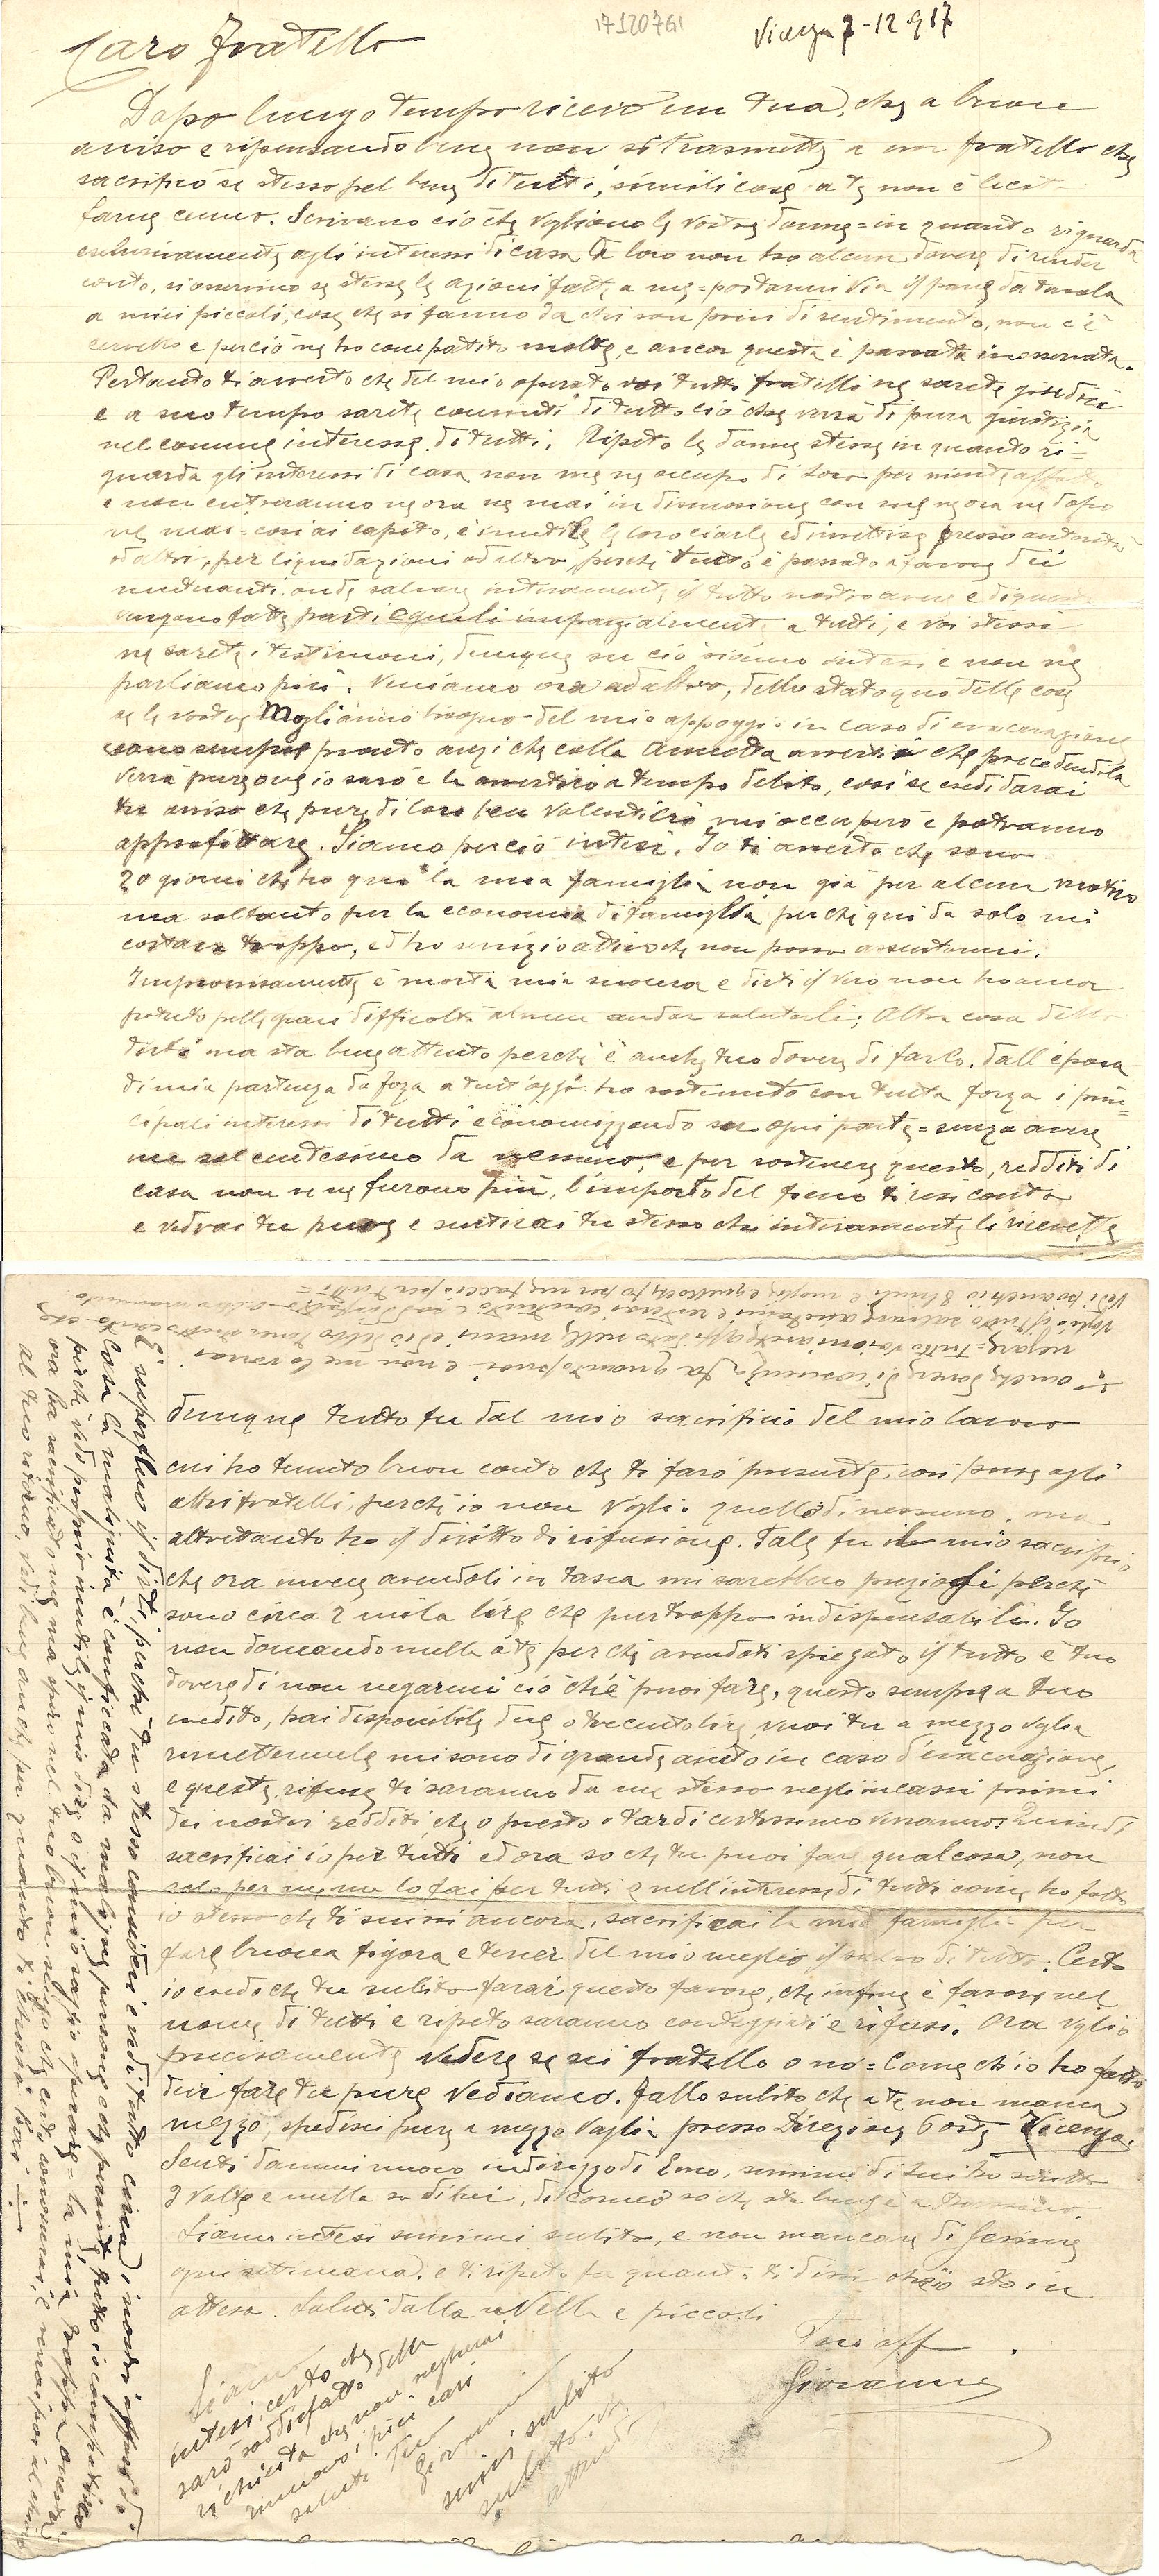 17120761
Vicenza 7-12-917
Caro fratello
Dopo lungo tempo ricevo un tua, che a buon
aviso e ripensando bene non si trasmette a un fratello che
sacrificò se stesso pel bene di tutti, simili cose a te non è lecit
farne cenno. Scrivano ciò che vogliono le vostre donne = in quanto riguarda
esclusivamente agli interessi di casa a loro non ho alcun dovere di render
conto, si osservino se stesse le azioni fatte a me = portarmi via il pane da tavola
a miei piccoli, cose che si fanno da chi son privi di sentimento, non c'è
cervello e perciò ne ho compatito molte, e ancor questa è passata inosservata.
Pertanto ti averto che del mio operato voi tutti fratelli ne sarete giudici
e a suo tempo sarete convinti di tutto ciò che verrà di pura giustizia
nel comune interesse di tutti. Ripeto le donne stesse in quanto ri=
guarda gli interessi di casa non me ne occupo di loro per niente affatto
e non entreranno ne ora ne mai in discussione con me ne ora ne dopo
ne mai = così ai capito, è inutile le loro ciarle ed invettive presso autorità
od altri, per liquidazioni od altro, perchè tutto è passato a favore dei
onde salvare interamente il tutto nostro avere e di questo
vengano fatte parti eguali imparzialmente a tutti, e voi stessi
ne sarete i testimoni, dunque su ciò siamo intesi e non ne
parliamo più. Veniamo ora ad altro, dello stato quo delle cose
se le vostre Mogli anno bisogno del mio appoggio in caso di evacuazione
sono sempre pronto anzi che colla Annetta avertii che precedendola
verrà pure ove io sarò e la avertirò a tempo debito, così se credi darai
tu aviso che pure di loro ben volentieri mi occuperò e potranno
approfittare. Siamo perciò intesi. Io ti averto che sono
20 giorni che ho qui la mia famiglia non già per alcun motivo
ma soltanto per la economia di famiglia perchè qui da solo mi
costava troppo, ed ho servizio attivo che non posso assentarmi.
Improvisamente è morta mia suocera e dirti il vero non ho ancor
potuto pelle gravi difficoltà almen andar salutarli; Altra cosa devo
dirti ma sta bene attento perchè è anche tuo dovere di farlo. Dall'epoca
di mia partenza da Foza a tutt'oggi ho sostenuto con tutta forza i prin=
cipali interessi di tutti economizzando su ogni parte = senza avere
un sol centesimo da nessuno, e per sostenere questo, redditi di
casa non ve ne furono più, l'importo del fieno ti resi conto
e vedrai tu pure e sentirai tu stesso chi interamente li ricevette
dunque tutto fu dal mio sacrificio del mio lavoro
cui ho tenuto buon conto che ti farò presente, così pure agli
altri fratelli, perchè io non voglio quello di nessuno, ma
altretanto ho il diritto di rifusione. Tale fu il mio sacrificio
che ora invece avendoli in tasca mi sarebbero preziosi perchè
sono circa 2 mila lire che purtroppo indispensabili. Io
non domando nulla a te perchè avendoti spiegato il tutto è tuo
dovere di non negarmi ciò ch'è puoi fare, questo sempre a tuo
credito, hai disponibile due o trecento lire, vuoi tu a mezzo vaglia
rimettermele mi sono di grande aiuto in caso d'evacuazione,
e queste rifuse ti saranno da me stesso negli incassi primi
dei nostri redditi, che o presto o tardi certissimo verranno: Quindi
sacrificai io per tutti ed ora so che tu puoi fare qualcosa, non
solo per me, ma lo fai per tutti e nell'interesse di tutti come ho fatto
io stesso che ti scrissi ancora, sacrificai la mia famiglia per
fare buona figura e tener del mio meglio il salvo di tutto. Certo
io credo che tu subito farai questo favore, che infine è favore nel
nome di tutti e ripeto saranno conteggiati e rifusi. Ora voglio
precisamente vedere se sei fratello o no = Come ch'io ho fatto
devi fare tu pure vediamo. Fallo subito che a te non manca
mezzo, spedisci pure a mezzo vaglia presso Direzione Poste Vicenza.
Senti dammi nuovo indirizzo di Emo, scrivimi di lui ho scritto
3 volte e nulla so di lui, di Romeo so che sta bene è a
Siamo intesi scrivimi subito, e non mancare di scrivere
ogni settimana, e ti ripeto fa quanto ti dissi ch'io sto in
attesa. Saluti dalla Nella e piccoli
Tuo aff
Giovanni
Siamo
intesi, certo che
sarò soddisfatto della
richiesta che non negherai
rinnovo i più cari
saluti Tuo
Giovanni
scrivi subito
subito
attendo
È superfluo il dirti, perchè tu stesso consideri e vedi tutto come i nostri affari di
Casa la malignità è conficcata da maligne persone che perciò tutto io compatisco
perchè vedo proprio inutile il mio dire o il mio saggio operare = la mia troppa onestà
ora ha sacrificato me ma spero nel tuo buon senso che certo conoscerai, e verrai poi al chiaro
al tuo ritorno, vedi bene anche per quando ti chiesi
è anche dovere di coscienza fa quanto puoi e non me lo vorrai
negare = tutto
Voglio il tutto salvare